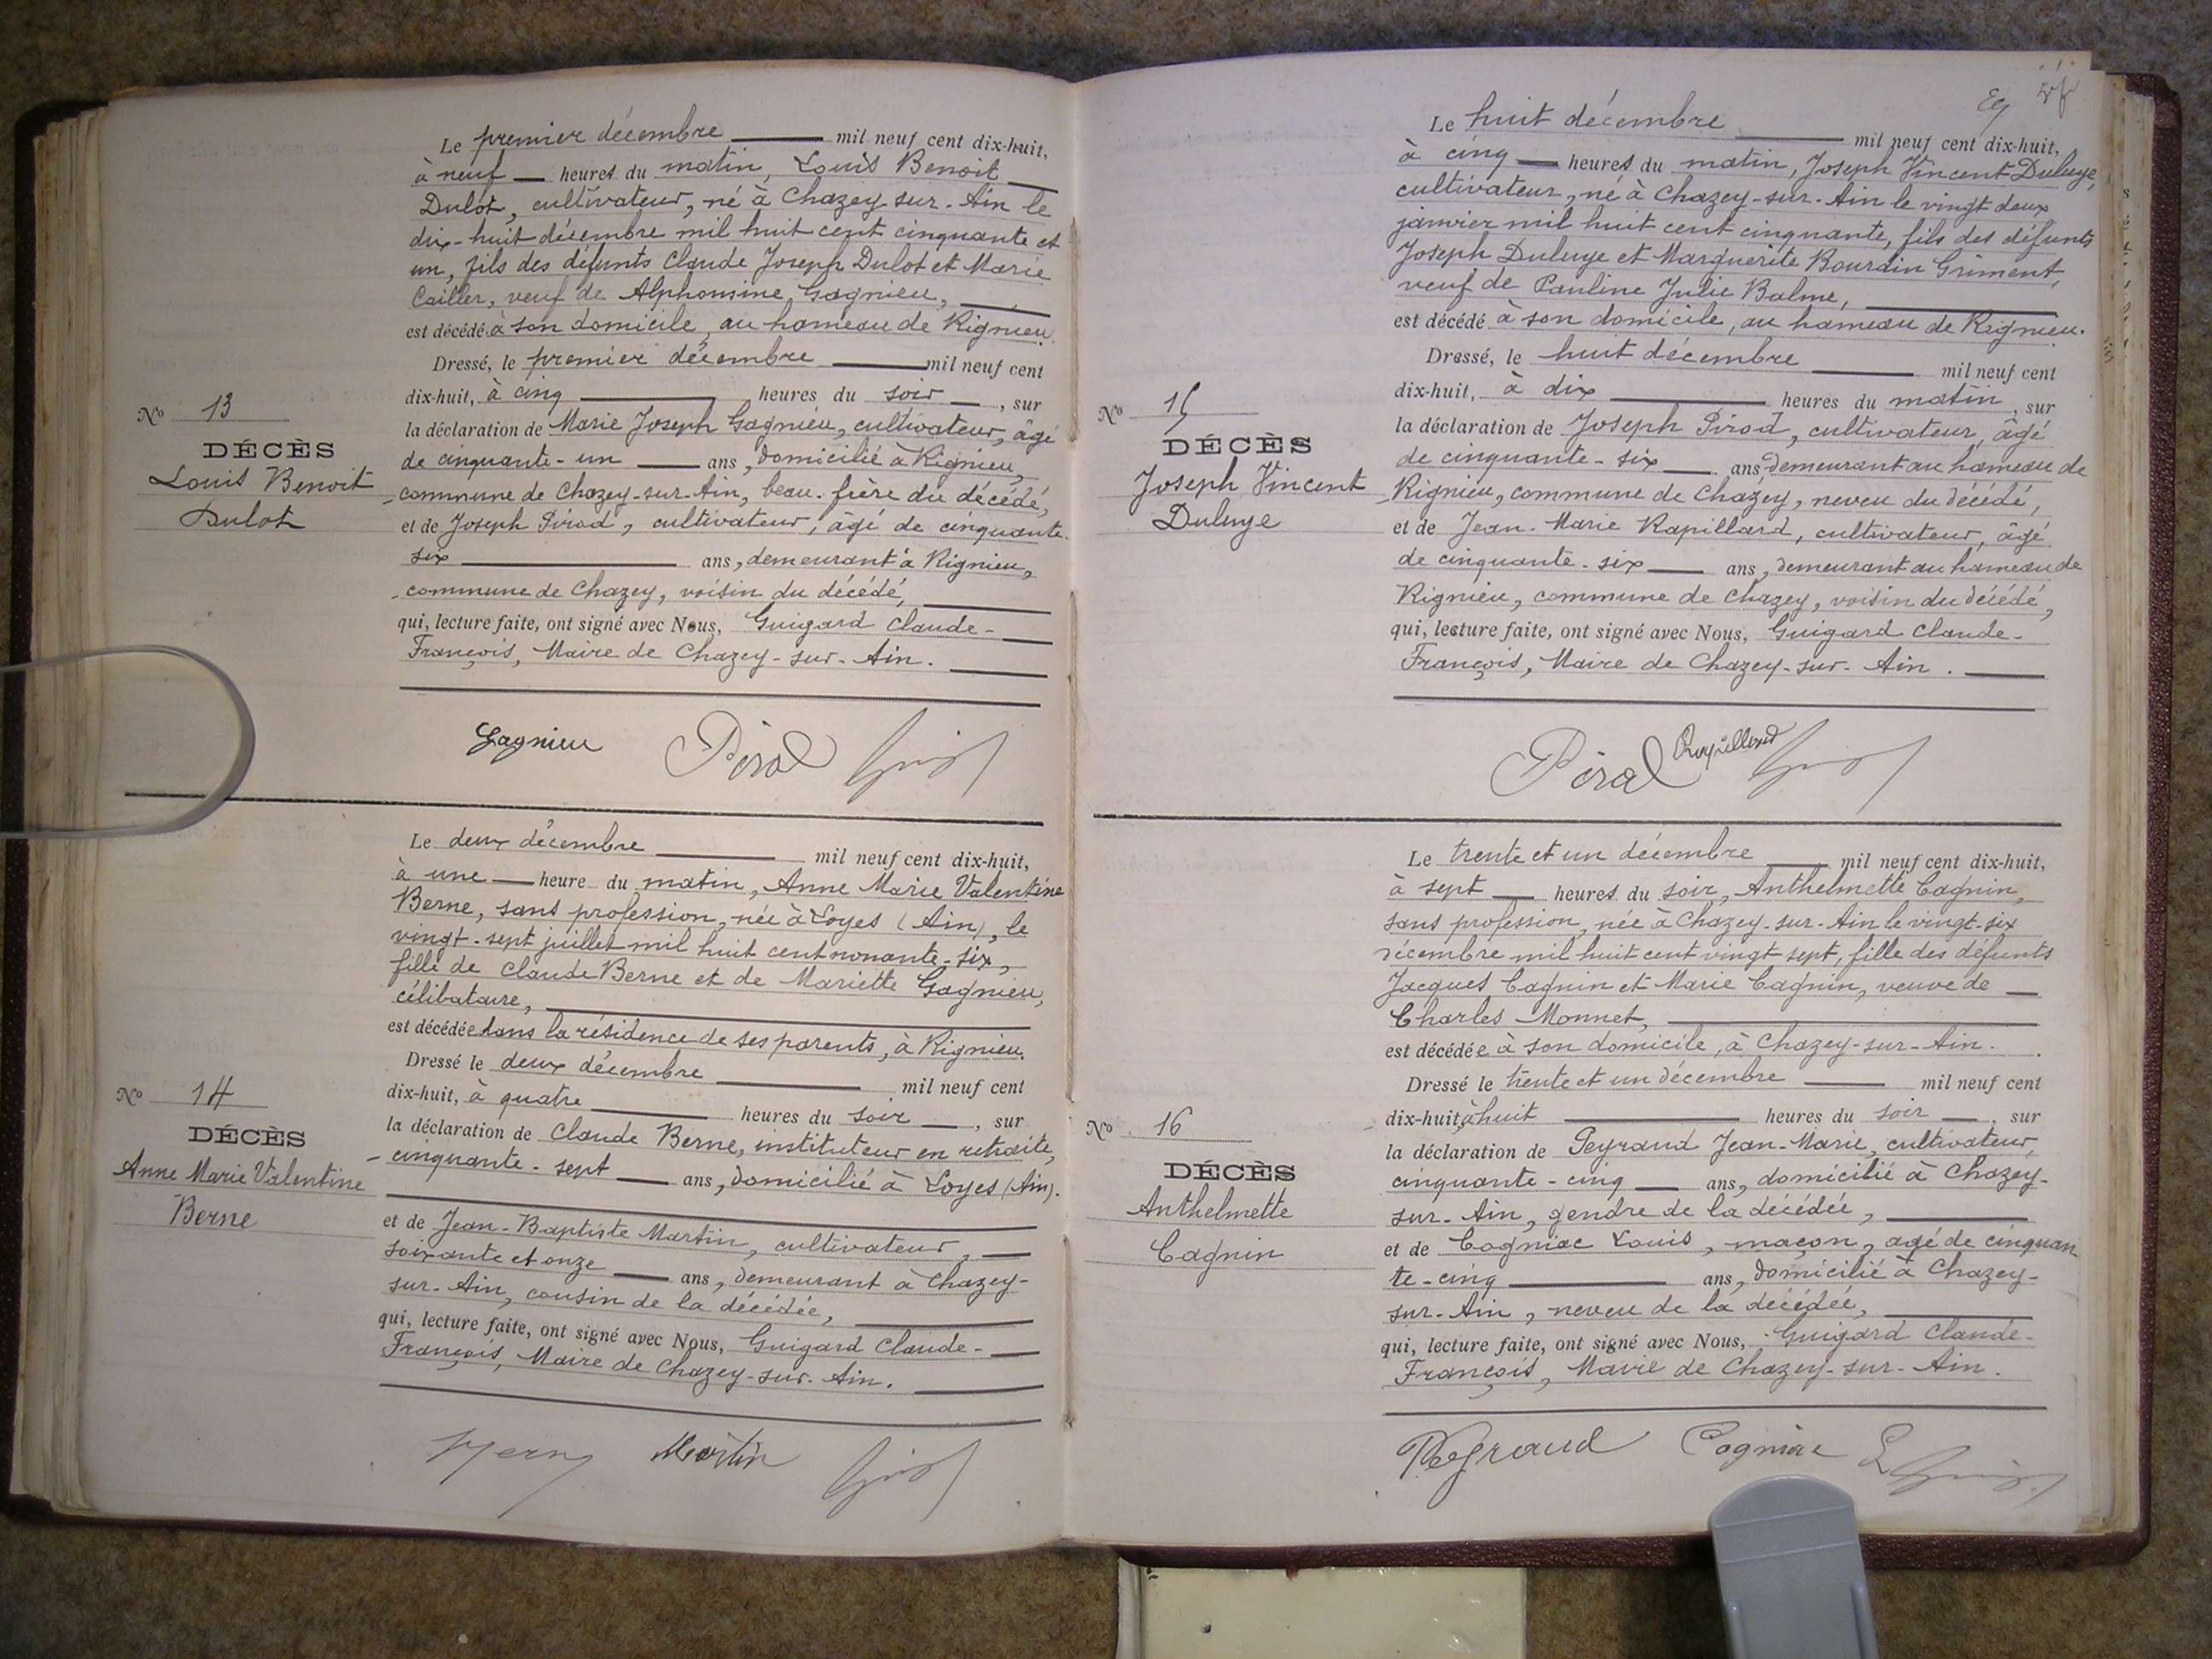 Le premier décembre mil neuf cent dix-huit,
à neuf heures du matin, Louis Benoit
Dulot, cultivateur, né à Chazey-sur-Ain le
dix-huit décembre mil huit cent cinquante et
un, fils des défunts Claude Joseph Dulot et Marie
Cailler, veuf de Alphonsine Gagnieu,
est décédé à son domicile, au hameau de Rignieu.
Dressé, le premier décembre mil neuf cent
dix-huit, à cinq heures du soir, sur
la déclaration de Marie Joseph Gagnieu, cultivateur, âgé
de cinquante-un ans, domicilié à Rignieu,
commune de Chazey-sur-Ain, beau-frère du décédé,
et de Joseph Pirod, cultivateur, âgé de cinquante-
six ans, demeurant à Rignieu,
commune de Chazey, voisin du décédé,
qui, lecture faite, ont signé avec Nous, Guigard Claude-
François, Maire de Chazey-sur-Ain.
No 13
DÉCÈS
Louis Benoit
Dulot
Gagnieu Pirod
Le deux décembre mil neuf cent dix-huit,
à une heure du matin, Anne Marie Valentine
Berne, sans profession, née à Loyes (Ain), le
vingt-sept juillet mil huit cent nonante-six,
fille de Claude Berne et de Mariette Gagnieu,
célibataire,
est décédée dans la résidence de ses parents, à Rignieu.
Dressé le deux décembre mil neuf cent
dix-huit, à quatre heures du soir, sur
la déclaration de Claude Berne, instituteur en retraite,
cinquante-sept ans, domicilié à Loyes (Ain).
et de Jean-Baptiste Martin, cultivateur,
soixante et onze ans, demeurant à Chazey-
sur-Ain, cousin de la décédée,
qui, lecture faite, ont signé avec Nous, Guigard Claude-
François, Maire de Chazey-sur-Ain.
No 14
DÉCÈS
Anne Marie Valentine
Berne
Berne Martin
Le huit décembre mil neuf cent dix-huit,
à cinq heures du matin, Joseph Vincent Duluye,
cultivateur, né à Chazey-sur-Ain le vingt deux
janvier mil huit cent cinquante, fils des défunts
Joseph Duluye et Marguerite Bourdin Griment,
veuf de Pauline Julie Balme,
est décédé à son domicile, au hameau de Rignieu.
Dressé, le huit décembre mil neuf cent
dix-huit, à dix heures du matin, sur
la déclaration de Joseph Pirod, cultivateur, âgé
de cinquante-six ans demeurant au hameau de
Rignieu, commune de Chazey, neveu du décédé,
et de Jean-Marie Rapillard, cultivateur, âgé
de cinquante-six ans, demeurant au hameau de
Rignieu, commune de Chazey, voisin du décédé,
qui, lecture faite, ont signé avec Nous, Guigard Claude-
François, Maire de Chazey-sur-Ain.
No 15
DÉCÈS
Joseph Vincent
Duluye
Pirod Rapillard
Le trente et un décembre mil neuf cent dix-huit,
à sept heures du soir, Anthelmette Cagnin,
sans profession, née à Chazey-sur-Ain le vingt-six
décembre mil huit cent vingt sept, fille des défunts
Jacques Cagnin et Marie Cagnin, veuve de
Charles Monnet,
est décédée à son domicile, à Chazey-sur-Ain.
Dressé le trente et un décembre mil neuf cent
dix-huit, à huit heures du soir, sur
la déclaration de Peyraud Jean-Marie, cultivateur,
cinquante-cinq ans, domicilié à Chazey-
sur-Ain, gendre de la décédée,
et de Cogniac Louis, maçon, agé de cinquan
te-cinq ans, domicilié à Chazey-
sur-Ain, neveu de la décédée,
qui, lecture faite, ont signé avec Nous, Guigard Claude-
François, Maire de Chazey-sur-Ain.
No 16
DÉCÈS
Anthelmette
Cagnin
Peyraud Cogniac L